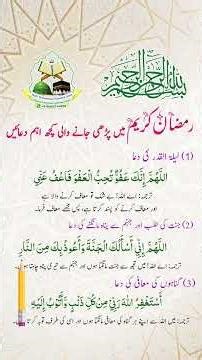 بسم الله الرحمن الرحيم
رمضان کریم میں پڑھی جانے والی کچھ اہم دعائیں
(1) لیلۃ القدر کی دعا
اَللّٰهُمَّ إِنَّكَ عَفُوٌّ تُحِبُّ الْعَفْوَ فَاعْفُ عَنِّي
ترجمہ: اے اللہ! بے شک تو معاف کرنے والا ہے
اور معاف کرنے کو پسند کرتا ہے، پس مجھے معاف فرما۔
(2) جنت کی طلب اور جہنم سے پناہ مانگنے کی دعا
اَللّٰهُمَّ إِنِّي أَسْأَلُكَ الْجَنَّةَ وَأَعُوذُ بِكَ مِنَ النَّارِ
ترجمہ: اے اللہ! میں تجھ سے جنت مانگتا ہوں اور جہنم سے تیری پناہ چاہتا ہوں۔
(3) گناہوں کی معافی کی دعا
أَسْتَغْفِرُ اللهَ رَبِّي مِنْ كُلِّ ذَنْبٍ وَأَتُوبُ إِلَيْهِ
ترجمہ: میں اللہ سے اپنے ہر گناہ کی معافی مانگتا ہوں اور اسی کی طرف توبہ کرتا ہوں